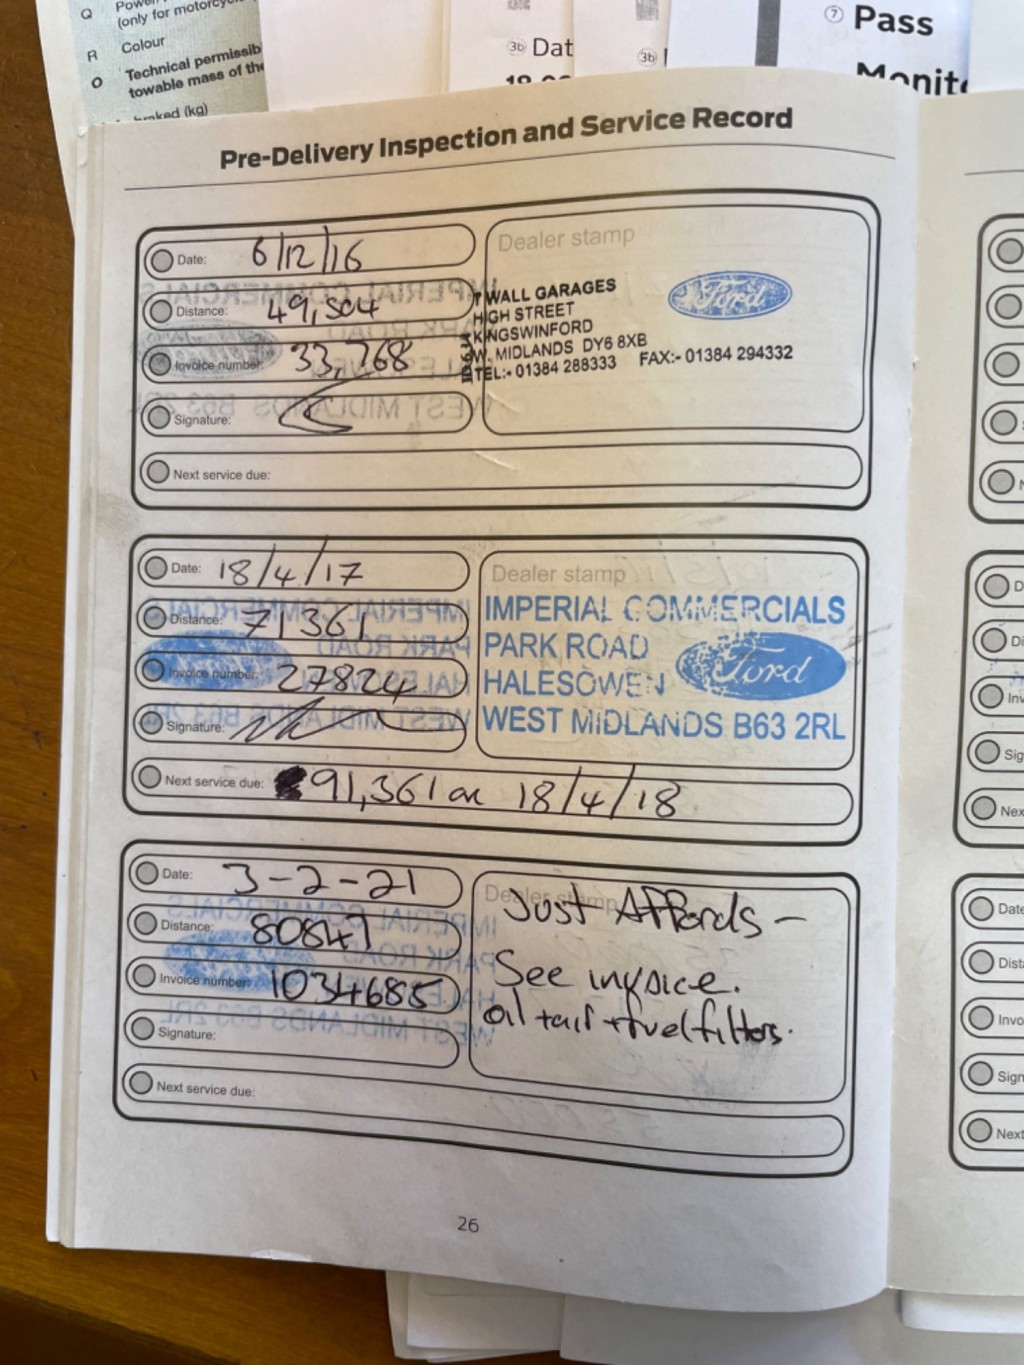 Q
(only for motorcycle
R Colour
O Technical permissib
towable mass of the
braked (kg)
3b Dat
3b
7 Pass
Monito
Pre-Delivery Inspection and Service Record
Date: 6/12/16
Distance: 49,504
Invoice number: 33,768
Signature:
Next service due:
Dealer stamp
WALL GARAGES
HIGH STREET
KINGSWINFORD
W. MIDLANDS DY6 8XB
TEL:- 01384 288333 FAX:- 01384 294332
Ford
Date: 18/4/17
Distance: 71361
Invoice number: 27824
Signature:
Next service due: 91,361 on 18/4/18
Dealer stamp
IMPERIAL COMMERCIALS
PARK ROAD
HALESOWEN
WEST MIDLANDS B63 2RL
Ford
Date: 3-2-21
Distance: 80847
Invoice number: 1034685
Signature:
Next service due:
Dealer stamp
Just Affords -
See invoice.
oil + air + fuel filters.
26
D
Di
Inv
Sig
Nex
Date
Dist
Invo
Sign
Next